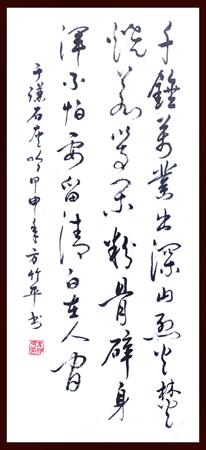 千錘萬鑿出深山烈火焚
燒若等閑粉骨碎身
渾不怕要留清白在人間
于謙石灰吟甲申年方竹平書